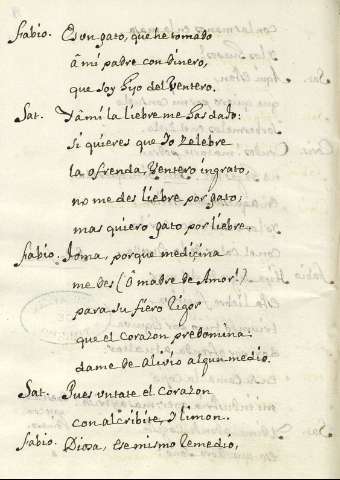 Fabio. Es un gato, que he tomado
â mi padre con dinero,
que soy hijo del Ventero.
Sat. Y â mi la liebre me has dado:
si quieres que Yo zelebre
la ofrenda, Ventero ingrato,
no me des liebre por gato;
mas quiero gato por liebre.
Fabio. Toma, porque medicina
me des (ô madre de Amor!)
para su fiero rigor
que el corazon predomina:
dame de alivio algun medio.
Sat. Pues untate el Corazon
con alcribite, y limon.
Fabio. Diosa, ese mismo remedio,